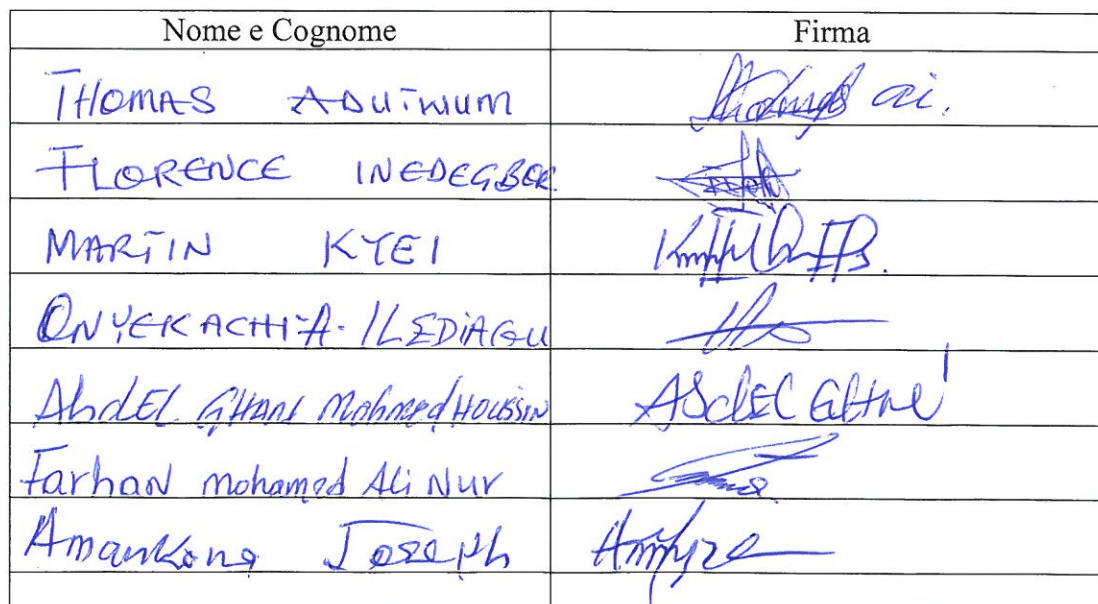 Nome e Cognome Firma
THOMAS ADUTWUM
FLORENCE INEDEGBOR
MARTIN KYEI
ONYEKACHI-A-ILEDIAGU
AbdEL GHANI Mohmed HOUSSIN AbdEL GHANI
Farhan mohamed Ali Nur
Amankona Joseph